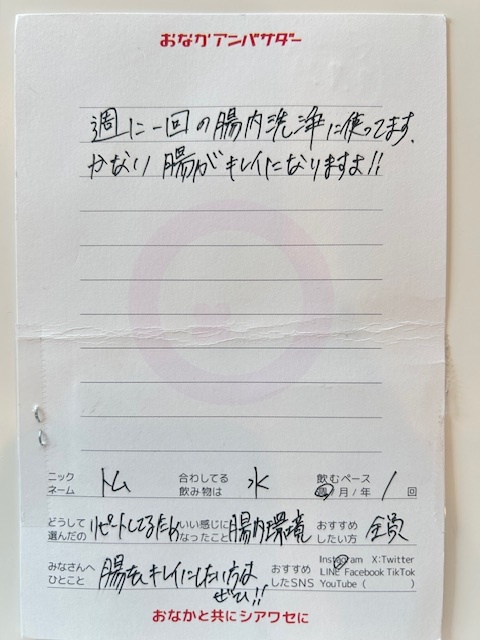 おなかアンバサダー
週に一回の腸内洗浄に使ってます、
かなり腸がキレイになりますよ!!
ニックネーム トム 合わしてる飲み物は 水 飲むペース 週/月/年 1 回
どうして選んだの リピートしてるから いい感じになったこと 腸内環境 おすすめしたい方 全員
みなさんへひとこと 腸をキレイにしたい方は ぜひ!! おすすめしたSNS Instagram X:Twitter LINE Facebook TikTok YouTube ( )
おなかと共にシアワセに